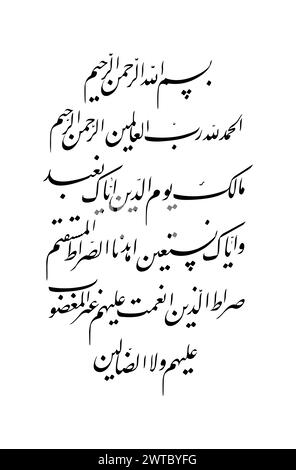 بسم الله الرحمن الرحیم
الحمدلله رب العالمین الرحمن الرحیم
مالک یوم الدین ایاک نعبد
وایاک نستعین اهدنا الصراط المستقیم
صراط الذین انعمت علیهم غیرالمغضوب
علیهم ولا الضالین
alamy
Image ID: 2WTBYFG
www.alamy.com